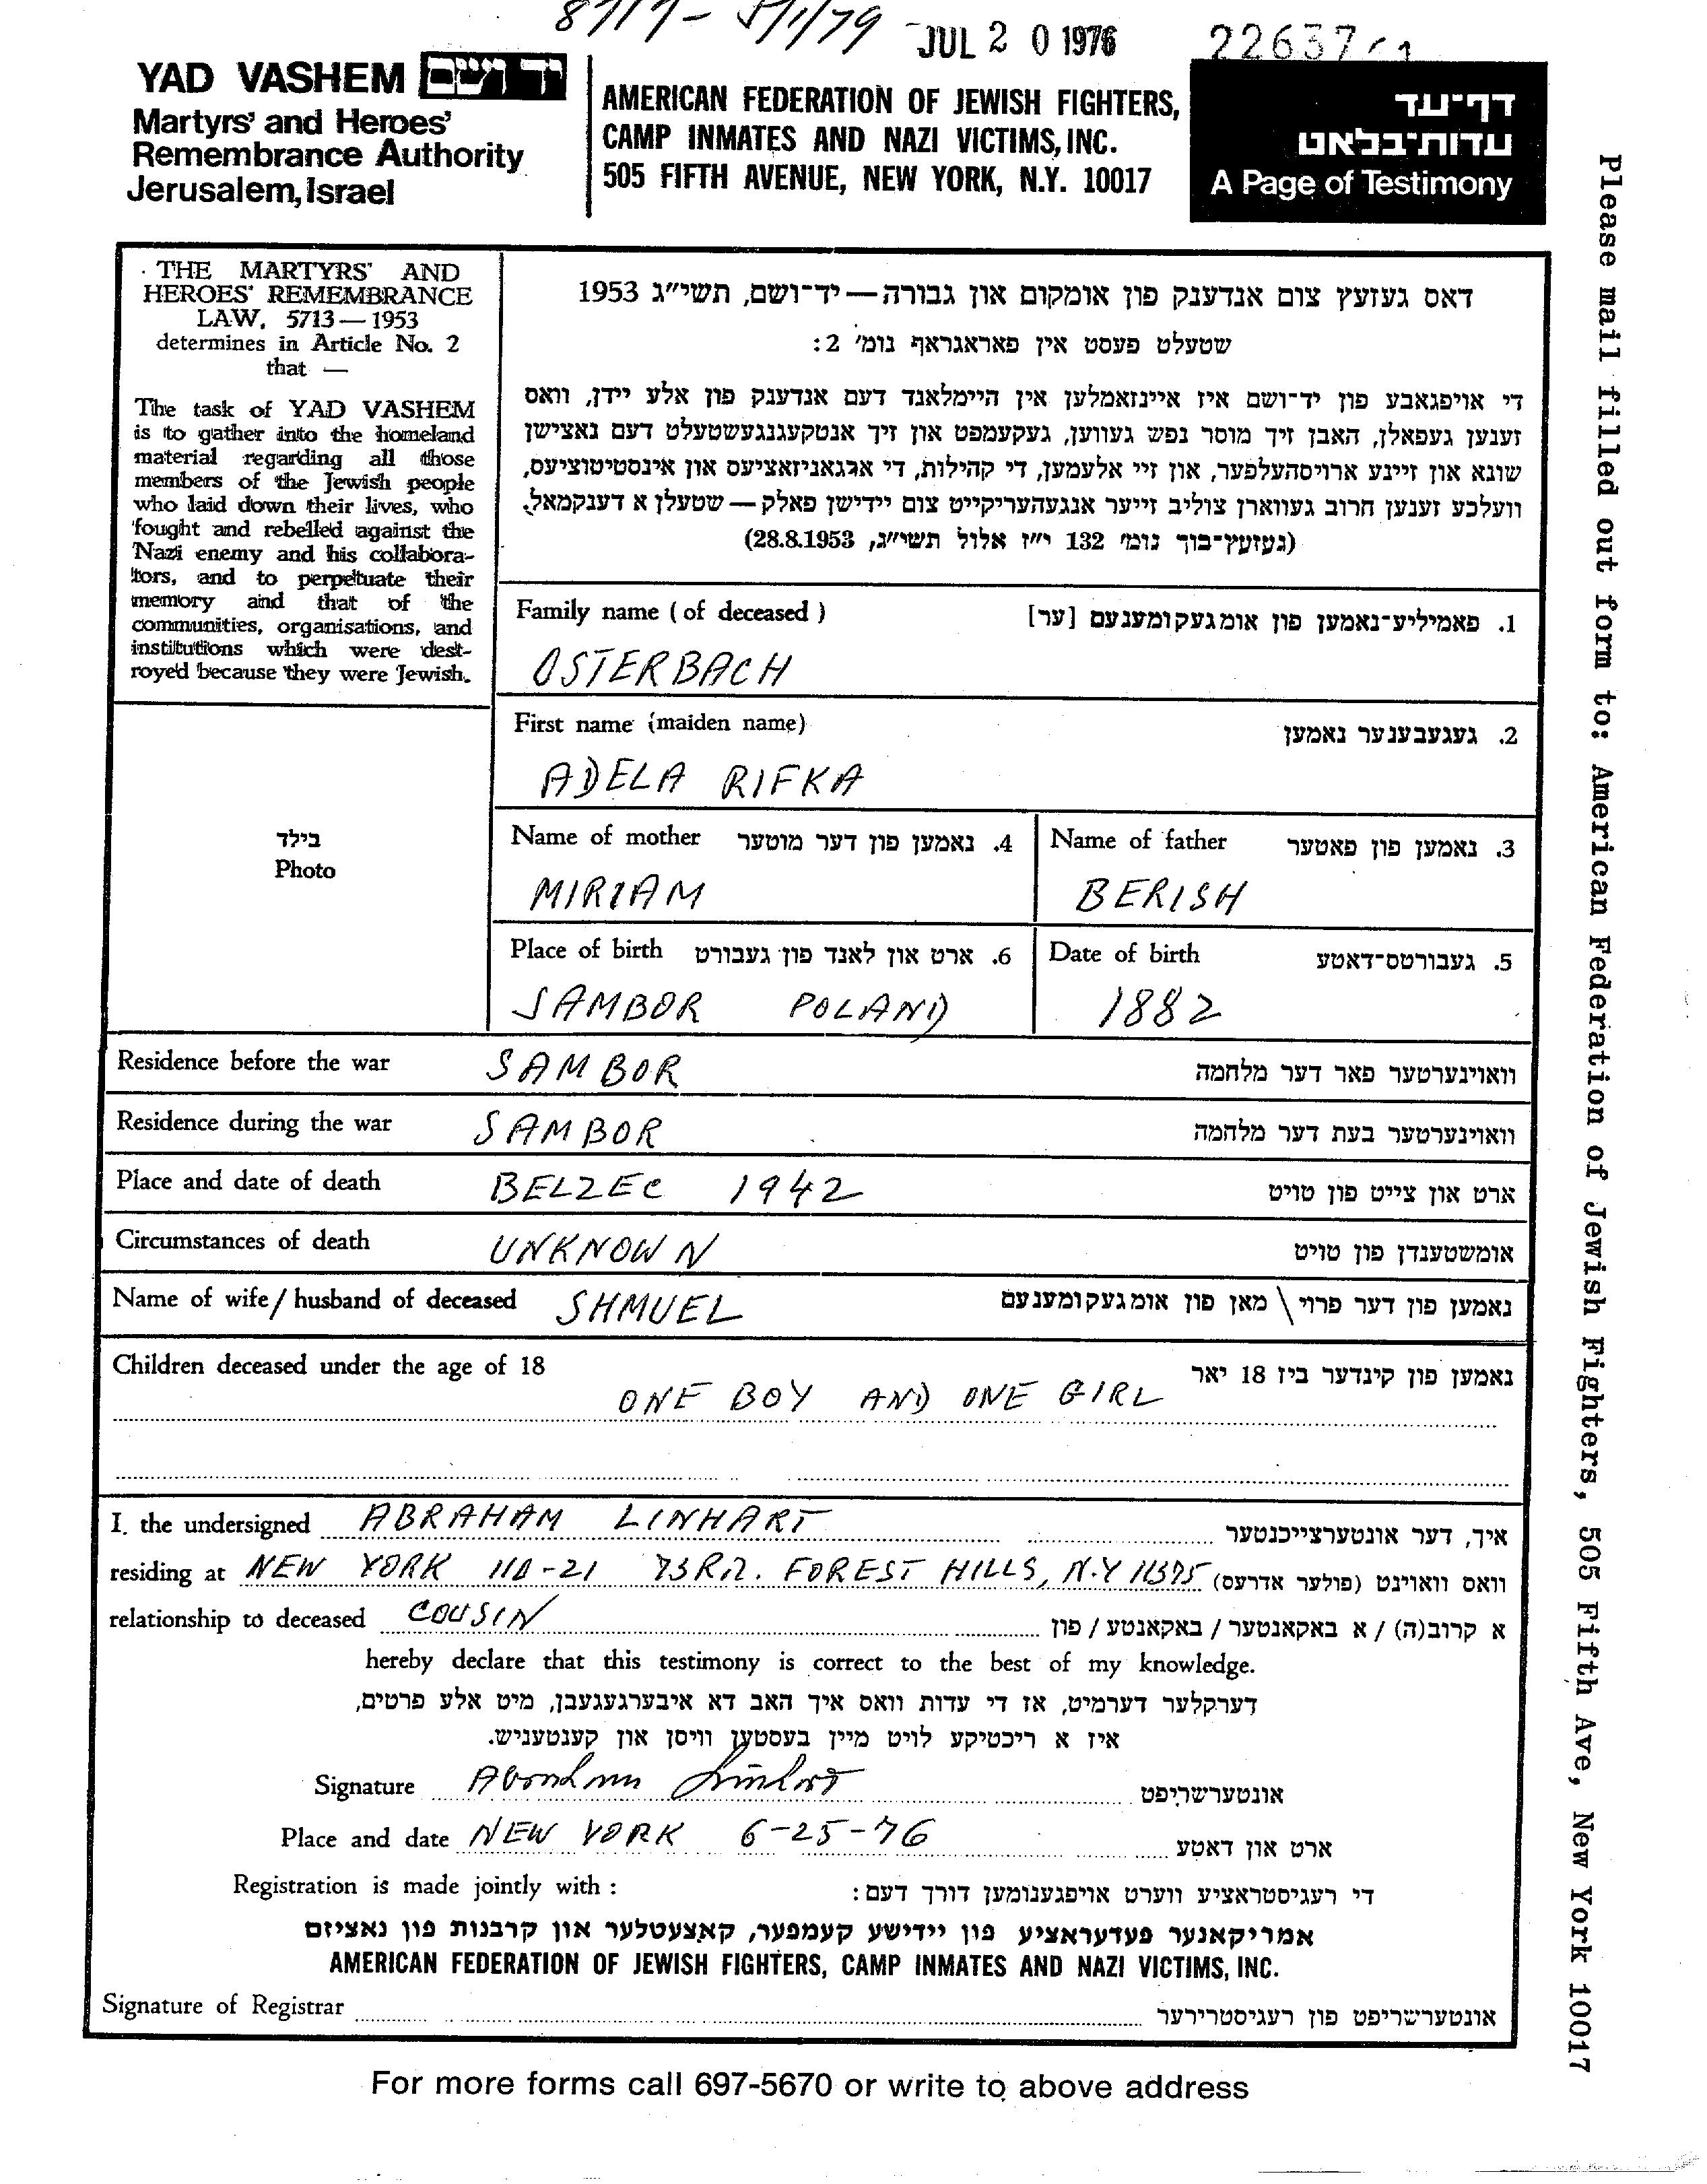 JUL 2 0 1976
YAD VASHEM יד ושם
Martyrs' and Heroes'
Remembrance Authority
Jerusalem, Israel
AMERICAN FEDERATION OF JEWISH FIGHTERS,
CAMP INMATES AND NAZI VICTIMS, INC.
505 FIFTH AVENUE, NEW YORK, N.Y. 10017
דף־עד
עדות־בלאט
A Page of Testimony
THE MARTYRS' AND
HEROES' REMEMBRANCE
LAW, 5713—1953
determines in Article No. 2
that —
The task of YAD VASHEM
is to gather into the homeland
material regarding all those
members of the Jewish people
who laid down their lives, who
fought and rebelled against the
Nazi enemy and his collabora-
tors, and to perpetuate their
memory and that of the
communities, organisations, and
institutions which were dest-
royed because they were Jewish.
דאס געזעץ צום אנדענק פון אומקום און גבורה — יד־ושם, תשי״ג 1953
שטעלט פעסט אין פאראגראף נומ׳ 2:
די אויפגאבע פון יד־ושם איז איינזאמלען אין היימלאנד דעם אנדענק פון אלע יידן, וואס
זענען געפאלן, האבן זיך מוסר נפש געווען, געקעמפט און זיך אנטקעגנגעשטעלט דעם נאצישן
שונא און זיינע ארויסהעלפער, און זיי אלעמען, די קהילות, די ארגאניזאציעס און אינסטיטוציעס,
וועלכע זענען חרוב געווארן צוליב זייער אנגעהעריקייט צום יידישן פאלק — שטעלן א דענקמאל.
(געזעץ־בוך נומ׳ 132 י״ז אלול תשי״ג, 28.8.1953)
Family name (of deceased) 1. פאמיליע־נאמען פון אומגעקומענעם [ער]
OSTERBACH
First name (maiden name) 2. געגעבענער נאמען
ADELA RIFKA
בילד
Photo
Name of mother 4. נאמען פון דער מוטער
MIRIAM
Name of father 3. נאמען פון פאטער
BERISH
Place of birth 6. ארט און לאנד פון געבורט
SAMBOR POLAND
Date of birth 5. געבורטס־דאטע
1882
Residence before the war SAMBOR וואוינערטער פאר דער מלחמה
Residence during the war SAMBOR וואוינערטער בעת דער מלחמה
Place and date of death BELZEC 1942 ארט און צייט פון טויט
Circumstances of death UNKNOWN אומשטענדן פון טויט
Name of wife / husband of deceased SHMUEL נאמען פון דער פרוי \ מאן פון אומגעקומענעם
Children deceased under the age of 18 נאמען פון קינדער ביז 18 יאר
ONE BOY AND ONE GIRL
I, the undersigned ABRAHAM LINHART איך, דער אונטערצייכנטער
residing at NEW YORK 110-21 73RD. FOREST HILLS, N.Y 11375 וואס וואוינט (פולער אדרעס)
relationship to deceased COUSIN א קרוב(ה) / א באקאנטער / באקאנטע / פון
hereby declare that this testimony is correct to the best of my knowledge.
דערקלער דערמיט, אז די עדות וואס איך האב דא איבערגעגעבן, מיט אלע פרטים,
איז א ריכטיקע לויט מיין בעסטען וויסן און קענטעניש.
Signature Abraham Linhart אונטערשריפט
Place and date NEW YORK 6-25-76 ארט און דאטע
Registration is made jointly with : די רעגיסטראציע ווערט אויפגענומען דורך דעם :
אמריקאנער פעדעראציע פון יידישע קעמפער, קאצעטלער און קרבנות פון נאציזם
AMERICAN FEDERATION OF JEWISH FIGHTERS, CAMP INMATES AND NAZI VICTIMS, INC.
Signature of Registrar אונטערשריפט פון רעגיסטרירער
For more forms call 697-5670 or write to above address
Please mail filled out form to: American Federation of Jewish Fighters, 505 Fifth Ave, New York 10017